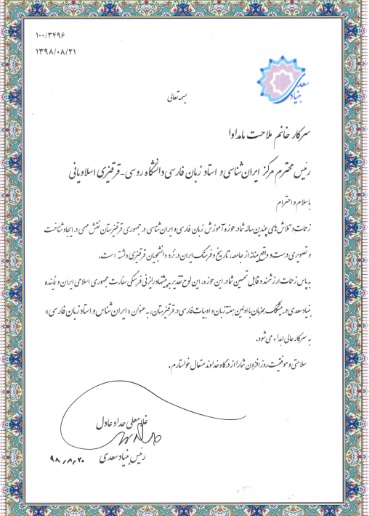 ۱۰۰/۳۴۹۶
۱۳۹۸/۰۸/۲۱
بنیاد سعدی
بسمه تعالی
سرکار خانم ملاحت مامداوا
رئیس محترم مرکز ایران‌شناسی و استاد زبان فارسی دانشگاه روسی-قرقیزی اسلاویانی
با سلام و احترام
زحمات و تلاش‌های چندین ساله شما در حوزه آموزش زبان فارسی و ایران‌شناسی در جمهوری قرقیزستان نقش مهمی در ایجاد شناخت
و تصویری درست و واقع بینانه از جامعه، تاریخ و فرهنگ ایران در نزد دانشجویان قرقیزی داشته است.
به پاس زحمات ارزشمند و قابل تحسین شما در این حوزه، این لوح تقدیر به پیشنهاد رایزنی فرهنگی سفارت جمهوری اسلامی ایران و نماینده
بنیاد سعدی در بیشکک همزمان با اولین هفته زبان و ادبیات فارسی در قرقیزستان، به عنوان «ایران شناس و استاد زبان فارسی»
به سرکار عالی اهداء می‌شود.
سلامتی و موفقیت روزافزون شما را از درگاه خداوند متعال خواستارم.
غلامعلی حداد عادل
رئیس بنیاد سعدی
۹۸/۸/۲۰